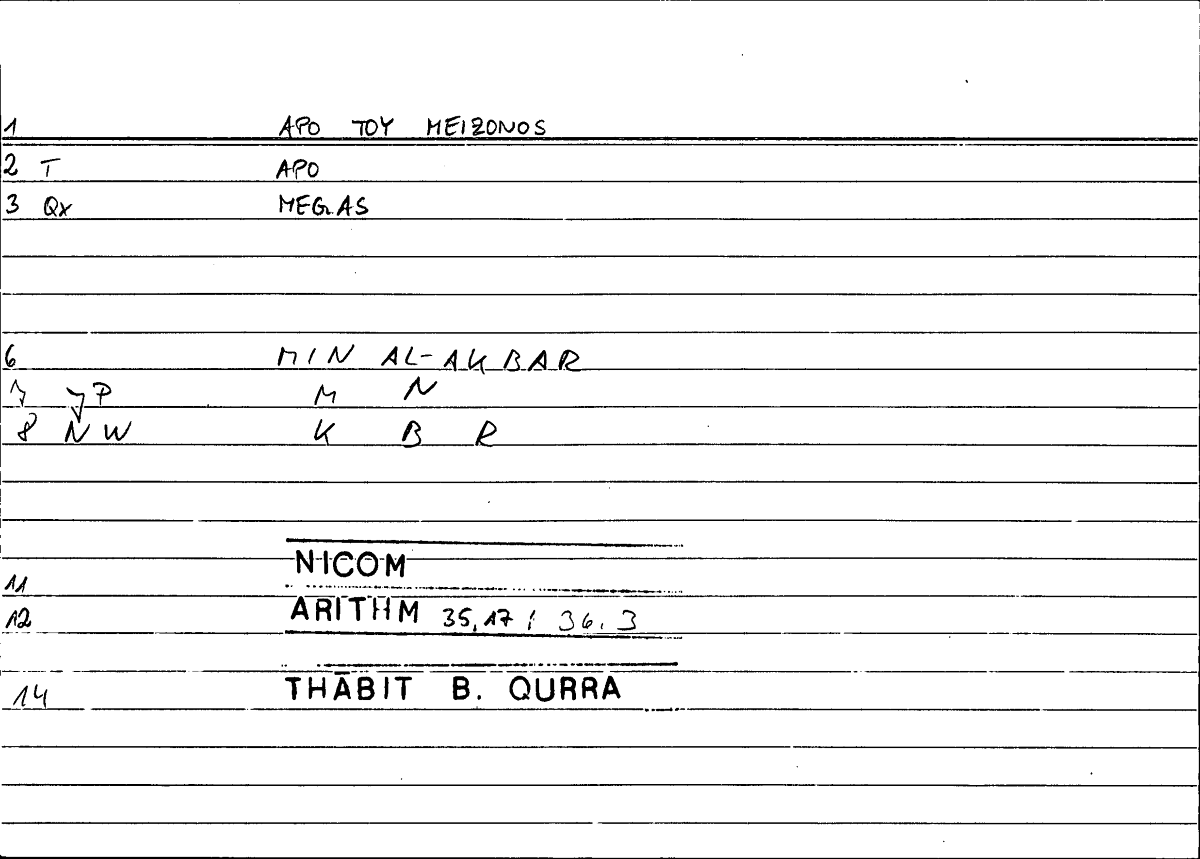 1 APO TOY MEIZONOS
2 T APO
3 Qx MEGAS
6 MIN AL-AKBAR
7 P M N
8 NW K B R
NICOM
11
12 ARITHM 35,17; 36.3
14 THĀBIT B. QURRA